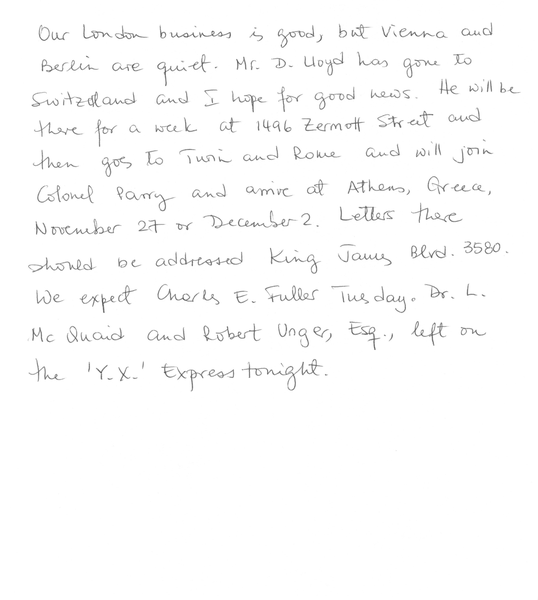 Our London business is good, but Vienna and
Berlin are quiet. Mr. D. Lloyd has gone to
Switzerland and I hope for good news. He will be
there for a week at 1496 Zermott Street and
then goes to Turin and Rome and will join
Colonel Parry and arrive at Athens, Greece,
November 27 or December 2. Letters there
should be addressed King James Blvd. 3580.
We expect Charles E. Fuller Tuesday. Dr. L.
McQuaid and Robert Unger, Esq., left on
the 'Y.X.' Express tonight.